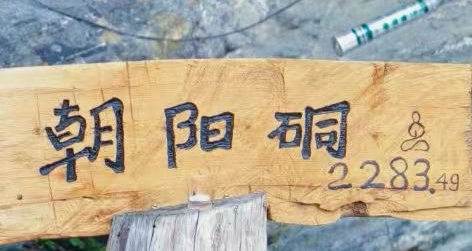 朝阳硐
2283.49